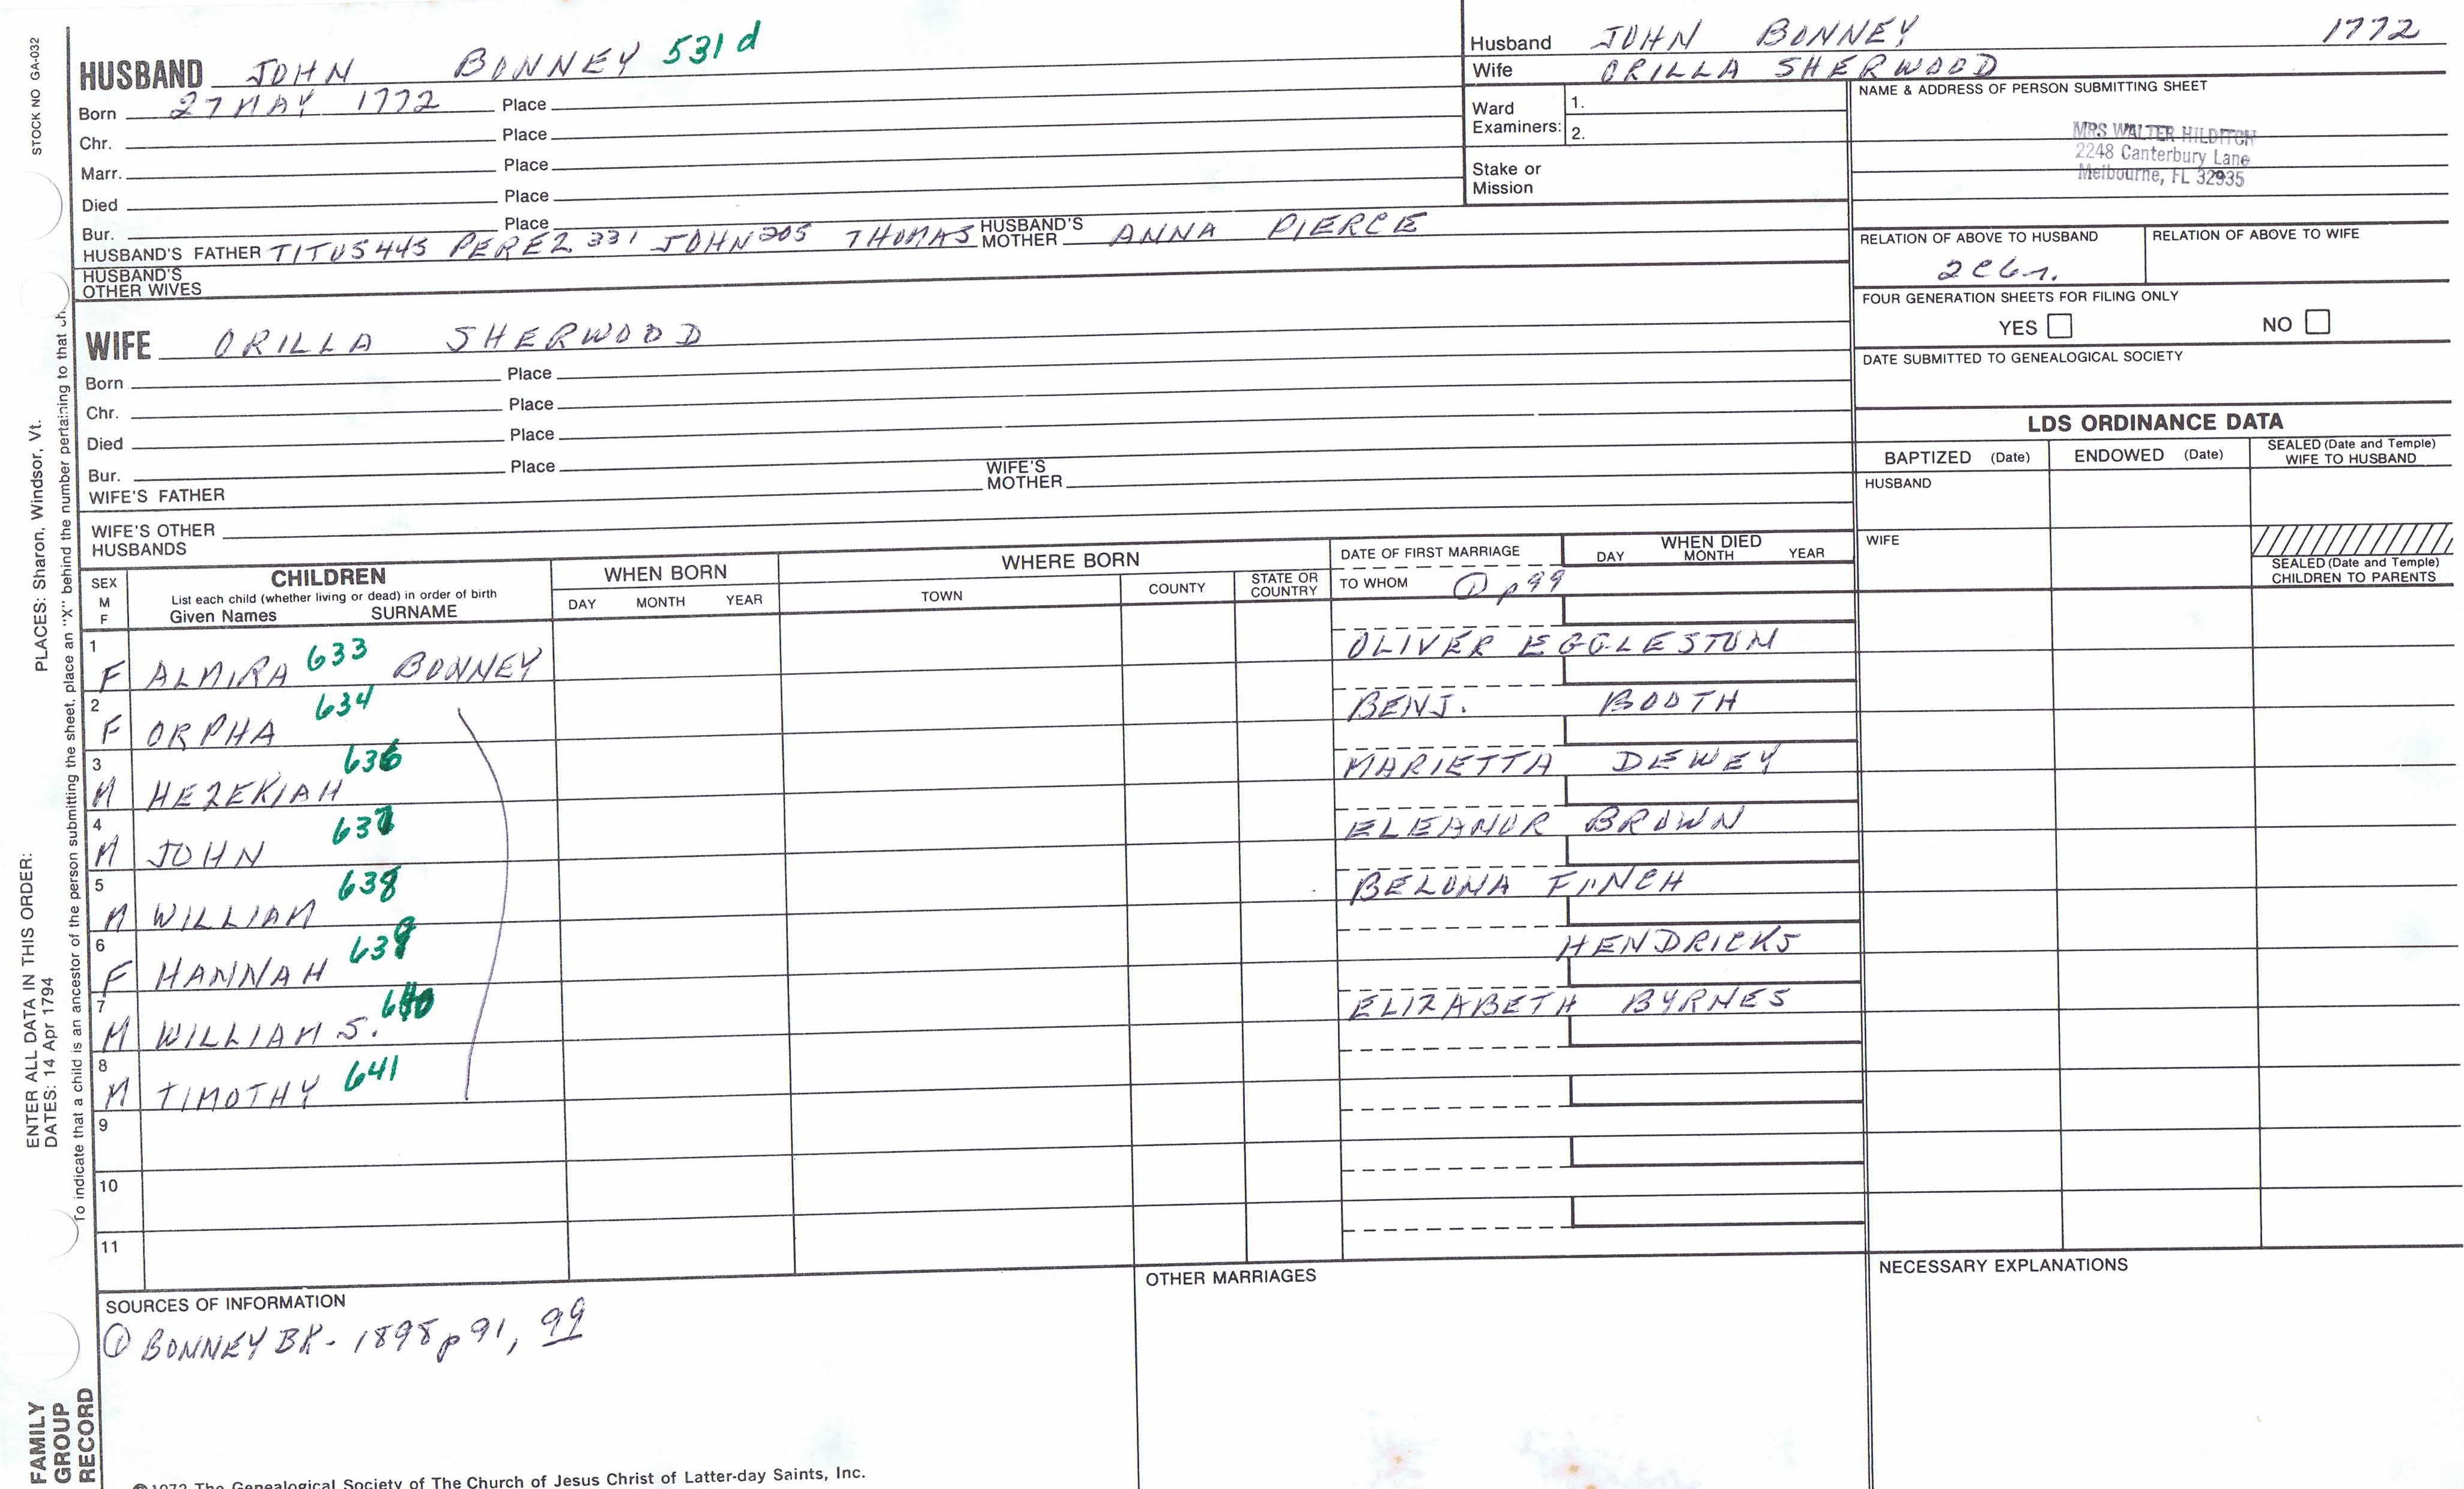 STOCK NO GA-032
PLACES: Sharon, Windsor, Vt.
ENTER ALL DATA IN THIS ORDER:
DATES: 14 Apr 1794
To indicate that a child is an ancestor of the person submitting the sheet, place an "X" behind the number pertaining to that
FAMILY
GROUP
RECORD
HUSBAND JOHN BONNEY 531 d
Born 27 MAY 1772 Place
Chr. Place
Marr. Place
Died Place
Bur. Place
HUSBAND'S FATHER TITUS 445 PEREZ 331 JOHN 205 THOMAS HUSBAND'S MOTHER ANNA PIERCE
HUSBAND'S
OTHER WIVES
WIFE ORILLA SHERWOOD
Born Place
Chr. Place
Died Place
Bur. Place
WIFE'S FATHER WIFE'S MOTHER
WIFE'S OTHER
HUSBANDS
Husband JOHN BONNEY 1772
Wife ORILLA SHERWOOD
Ward
Examiners:
1.
2.
Stake or
Mission
NAME & ADDRESS OF PERSON SUBMITTING SHEET
MRS WALTER HILDITCH
2248 Canterbury Lane
Melbourne, FL 32935
RELATION OF ABOVE TO HUSBAND RELATION OF ABOVE TO WIFE
FOUR GENERATION SHEETS FOR FILING ONLY
YES NO
DATE SUBMITTED TO GENEALOGICAL SOCIETY
LDS ORDINANCE DATA
BAPTIZED (Date) ENDOWED (Date) SEALED (Date and Temple) WIFE TO HUSBAND
HUSBAND
WIFE
SEALED (Date and Temple)
CHILDREN TO PARENTS
SEX
M
F
CHILDREN
List each child (whether living or dead) in order of birth
Given Names SURNAME
WHEN BORN
DAY MONTH YEAR
WHERE BORN
TOWN COUNTY STATE OR COUNTRY
DATE OF FIRST MARRIAGE
TO WHOM ① p 99
WHEN DIED
DAY MONTH YEAR
1 F ALMIRA 633 BONNEY OLIVER EGGLESTON
2 F ORPHA 634 BENJ. BOOTH
3 M HEZEKIAH 636 MARIETTA DEWEY
4 M JOHN 637 ELEANOR BROWN
5 M WILLIAM 638 BELONA FINCH
6 F HANNAH 639 HENDRICKS
7 M WILLIAM S. 640 ELIZABETH BYRNES
8 M TIMOTHY 641
9
10
11
SOURCES OF INFORMATION
① BONNEY BK - 1898 p 91, 99
OTHER MARRIAGES
NECESSARY EXPLANATIONS
©1972 The Genealogical Society of The Church of Jesus Christ of Latter-day Saints, Inc.